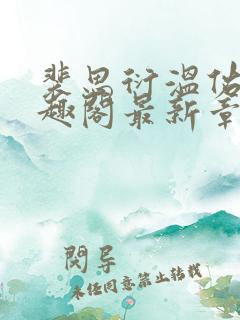 裴思衍温佑
趣阁最新章
阅导
未经同意禁止转载